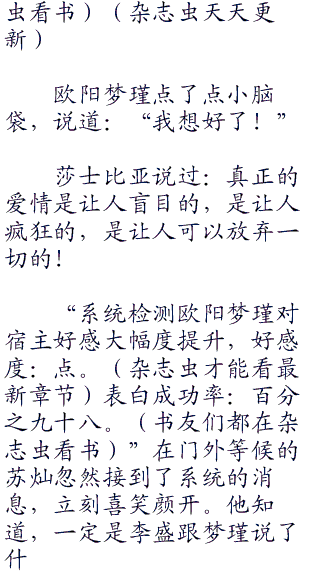 虫看书）（杂志虫天天更
新）
欧阳梦瑾点了点小脑
袋，说道：“我想好了！”
莎士比亚说过：真正的
爱情是让人盲目的，是让人
疯狂的，是让人可以放弃一
切的！
“系统检测欧阳梦瑾对
宿主好感大幅度提升，好感
度：点。（杂志虫才能看最
新章节）表白成功率：百分
之九十八。（书友们都在杂
志虫看书）”在门外等候的
苏灿忽然接到了系统的消
息，立刻喜笑颜开。他知
道，一定是李盛跟梦瑾说了
什